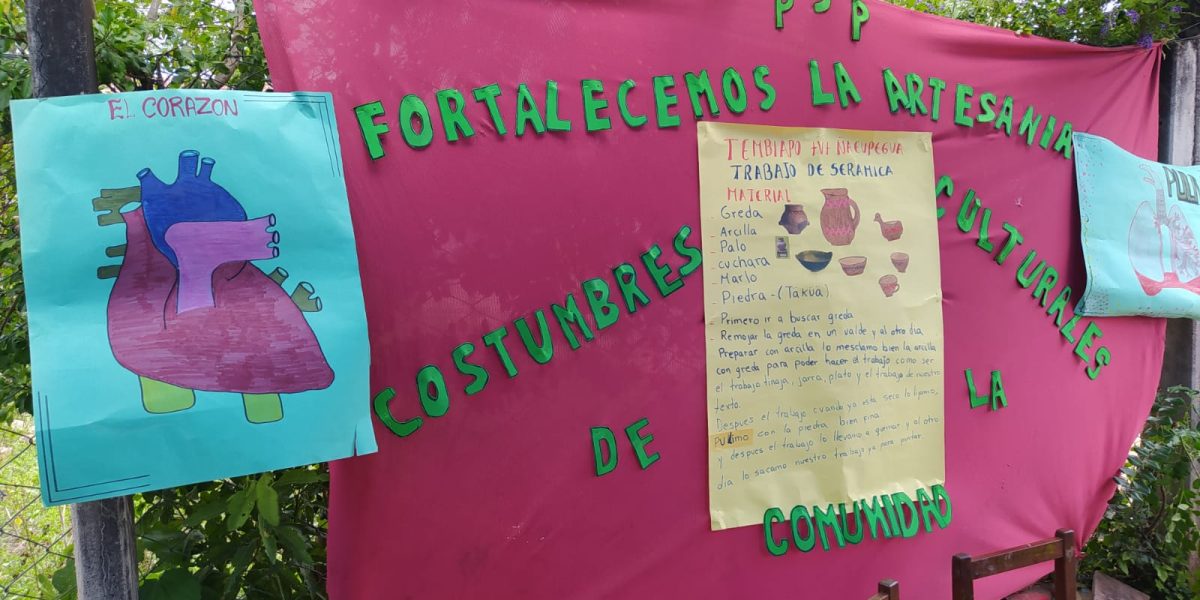 PSP
EL CORAZON
FORTALECEMOS LA ARTESANIA
COSTUMBRES CULTURALES
DE LA
COMUNIDAD
TEMBIAPO
TRABAJO DE SERAMICA
MATERIAL
- Greda
- Arcilla
- Palo
- cuchara
- Marlo
- Piedra - (Takua)
- Primero ir a buscar greda
- Remojar la greda en un valde y al otro dia
Preparar con arcilla lo mesclamo bien la arcilla
con greda para poder hacer el trabajo como ser
el trabajo tinaja, jarra, plato y el trabajo de nuestro
texto.
Despues el trabajo cuando ya esta seco lo lijamo,
Pulimo con la piedra bien fina.
y despues el trabajo lo llevamo a quemar y al otro
dia lo sacamo nuestro trabajo ya para pintar.